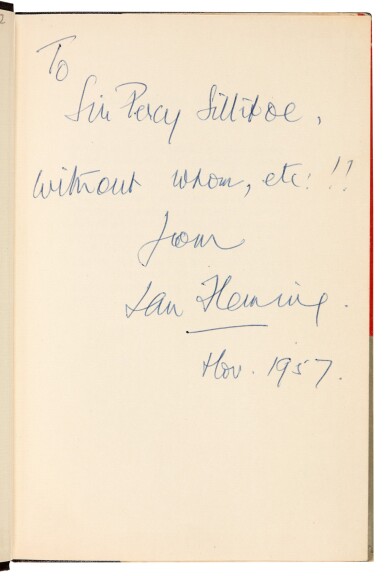 To
Sir Percy Sillitoe,
without whom, etc: !!
from
Ian Fleming.
Nov. 1957.